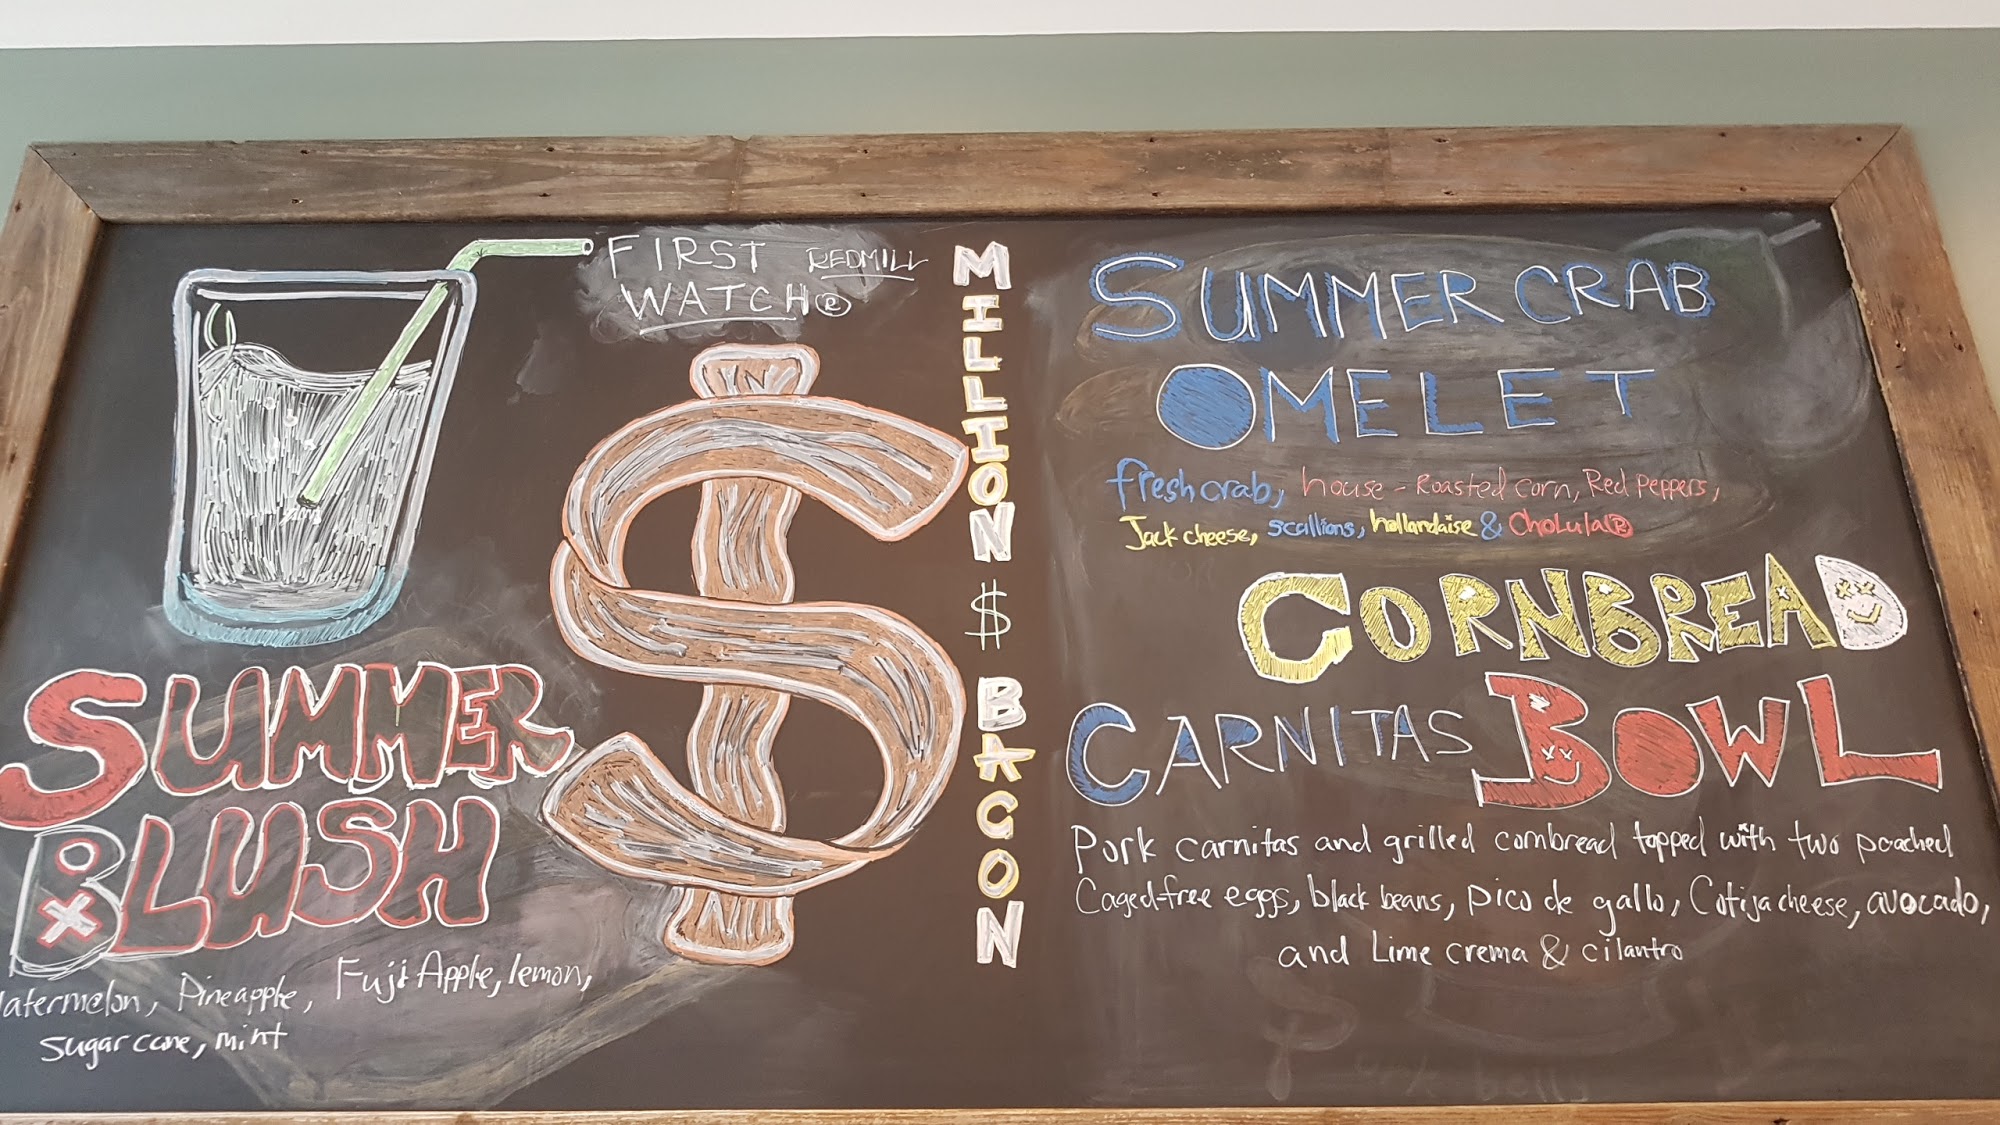 FIRST REDMILL
WATCH®
SUMMER
BLUSH
Watermelon, Pineapple, Fuji Apple, lemon,
sugar cane, mint
MILLION $ BACON
SUMMER CRAB
OMELET
fresh crab, house-Roasted corn, Red Peppers,
Jack cheese, scallions, hollandaise & CHOLULA®
CORNBREAD
CARNITAS BOWL
Pork carnitas and grilled cornbread topped with two poached
Caged-free eggs, black beans, pico de gallo, Cotija cheese, avocado,
and Lime crema & cilantro